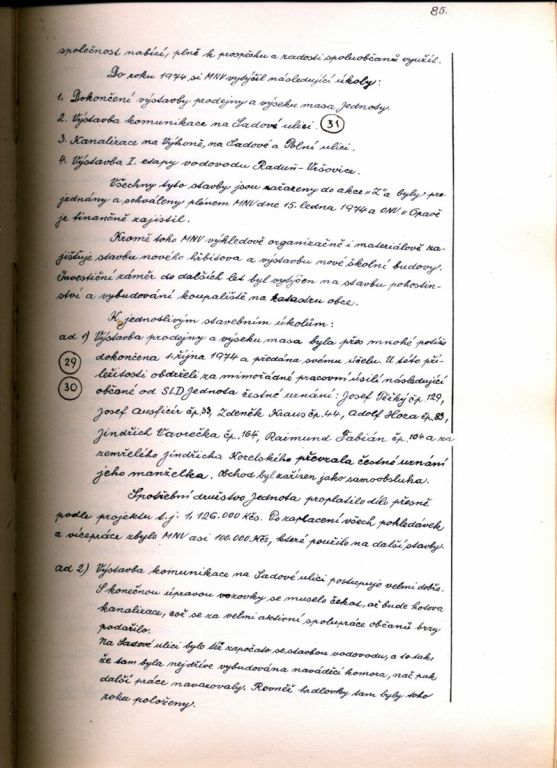 85.
společnost nabízí, plně k prospěchu a radosti spoluobčanů využít.
Do roku 1974 si MNV vytýčil následující úkoly:
1. Dokončení výstavby prodejny a výseku masa Jednoty.
2. Výstavba komunikace na Sadové ulici. 31
3. Kanalizace na Výhoně, na Sadové a Polní ulici.
4. Výstavba I. etapy vodovodu Raduň-Vršovice.
Všechny tyto stavby jsou zařazeny do akce "Z" a byly pro-
jednány a schváleny plénem MNV dne 15. ledna 1974 a ONV v Opavě
je finančně zajistil.
Kromě toho MNV výhledově organizačně i materiálově za-
jišťuje stavbu nového hřbitova a výstavbu nové školní budovy.
Investiční záměr do dalších let byl vytýčen na stavbu pohostin-
ství a vybudování koupaliště na katastru obce.
K jednotlivým stavebním úkolům:
ad 1) Výstavba prodejny a výseku masa byla přes mnohé potíže
29 dokončena 1. října 1974 a předána svému účelu. U této pří-
ležitosti obdrželi za mimořádné pracovní úsilí následující
30 občané od SLD Jednota čestné uznání: Josef Těžký čp. 129,
Josef Ausficír čp. 33, Zdeněk Kraus čp. 44, Adolf Hoza čp. 83,
Jindřich Vavrečka čp. 164, Raimund Fabián čp. 104 a za
zemřelého Jindřicha Kozelského převzala čestné uznání
jeho manželka. Obchod byl zařízen jako samoobsluha.
Spotřební družstvo Jednota proplatilo dílo přesně
podle projektu t.j. 1,126.000 Kčs. Po zaplacení všech pohledávek
a vícepráce zbylo MNV asi 100.000 Kčs, které použilo na další stavby.
ad 2) Výstavba komunikace na Sadové ulici postupuje velmi dobře.
S konečnou úpravou vozovky se muselo čekat, až bude hotova
kanalizace, což se za velmi aktivní spolupráce občanů brzy
podařilo.
Na Sadové ulici bylo též započato se stavbou vodovodu, a to tak,
že tam byla nejdříve vybudována naváděcí komora, nač pak
další práce navazovaly. Rovněž hrdlovky tam byly toho
roku položeny.